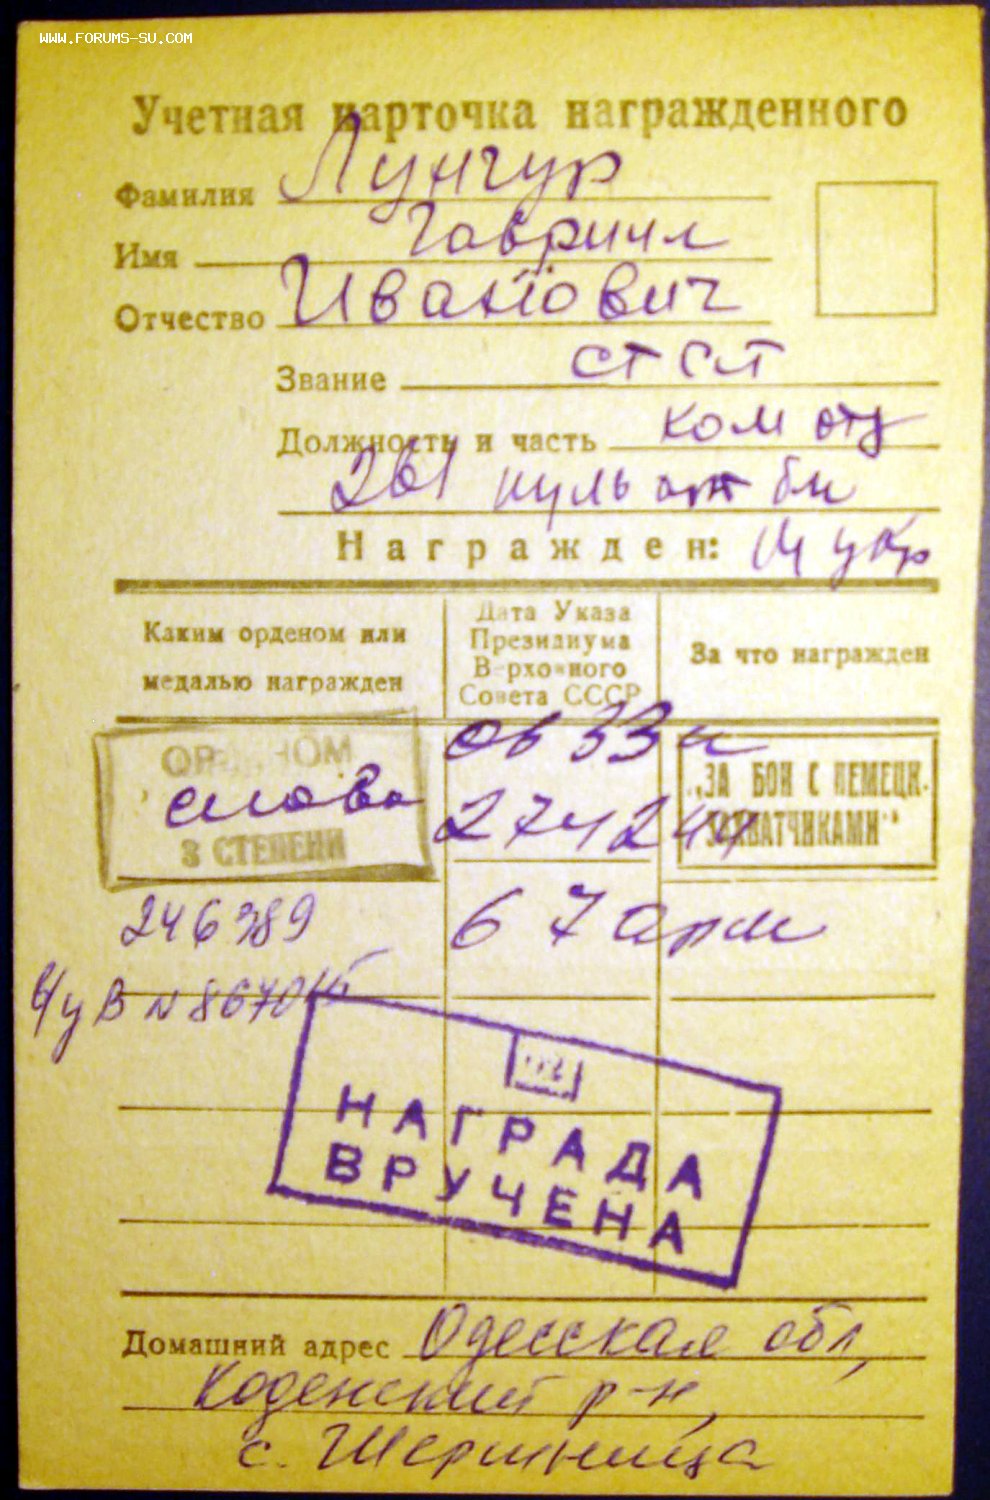 WWW.FORUMS-SU.COM
Учетная карточка награжденного
Фамилия Лунгур
Имя Гавриил
Отчество Иванович
Звание ст с-т
Должность и часть ком отд
261 пуль арт б-н
Награжден: 1У укр
Каким орденом или медалью награжден
Дата Указа Президиума Верховного Совета СССР
За что награжден
ОРДЕНОМ
слава
3 СТЕПЕНИ
06 33 н
27 4 2 44
„ЗА БОИ С НЕМЕЦК. ЗАХВАТЧИКАМИ"
246389
6 7 арм
В N 867015
НАГРАДА
ВРУЧЕНА
Домашний адрес Одесская обл,
р-н,
с.